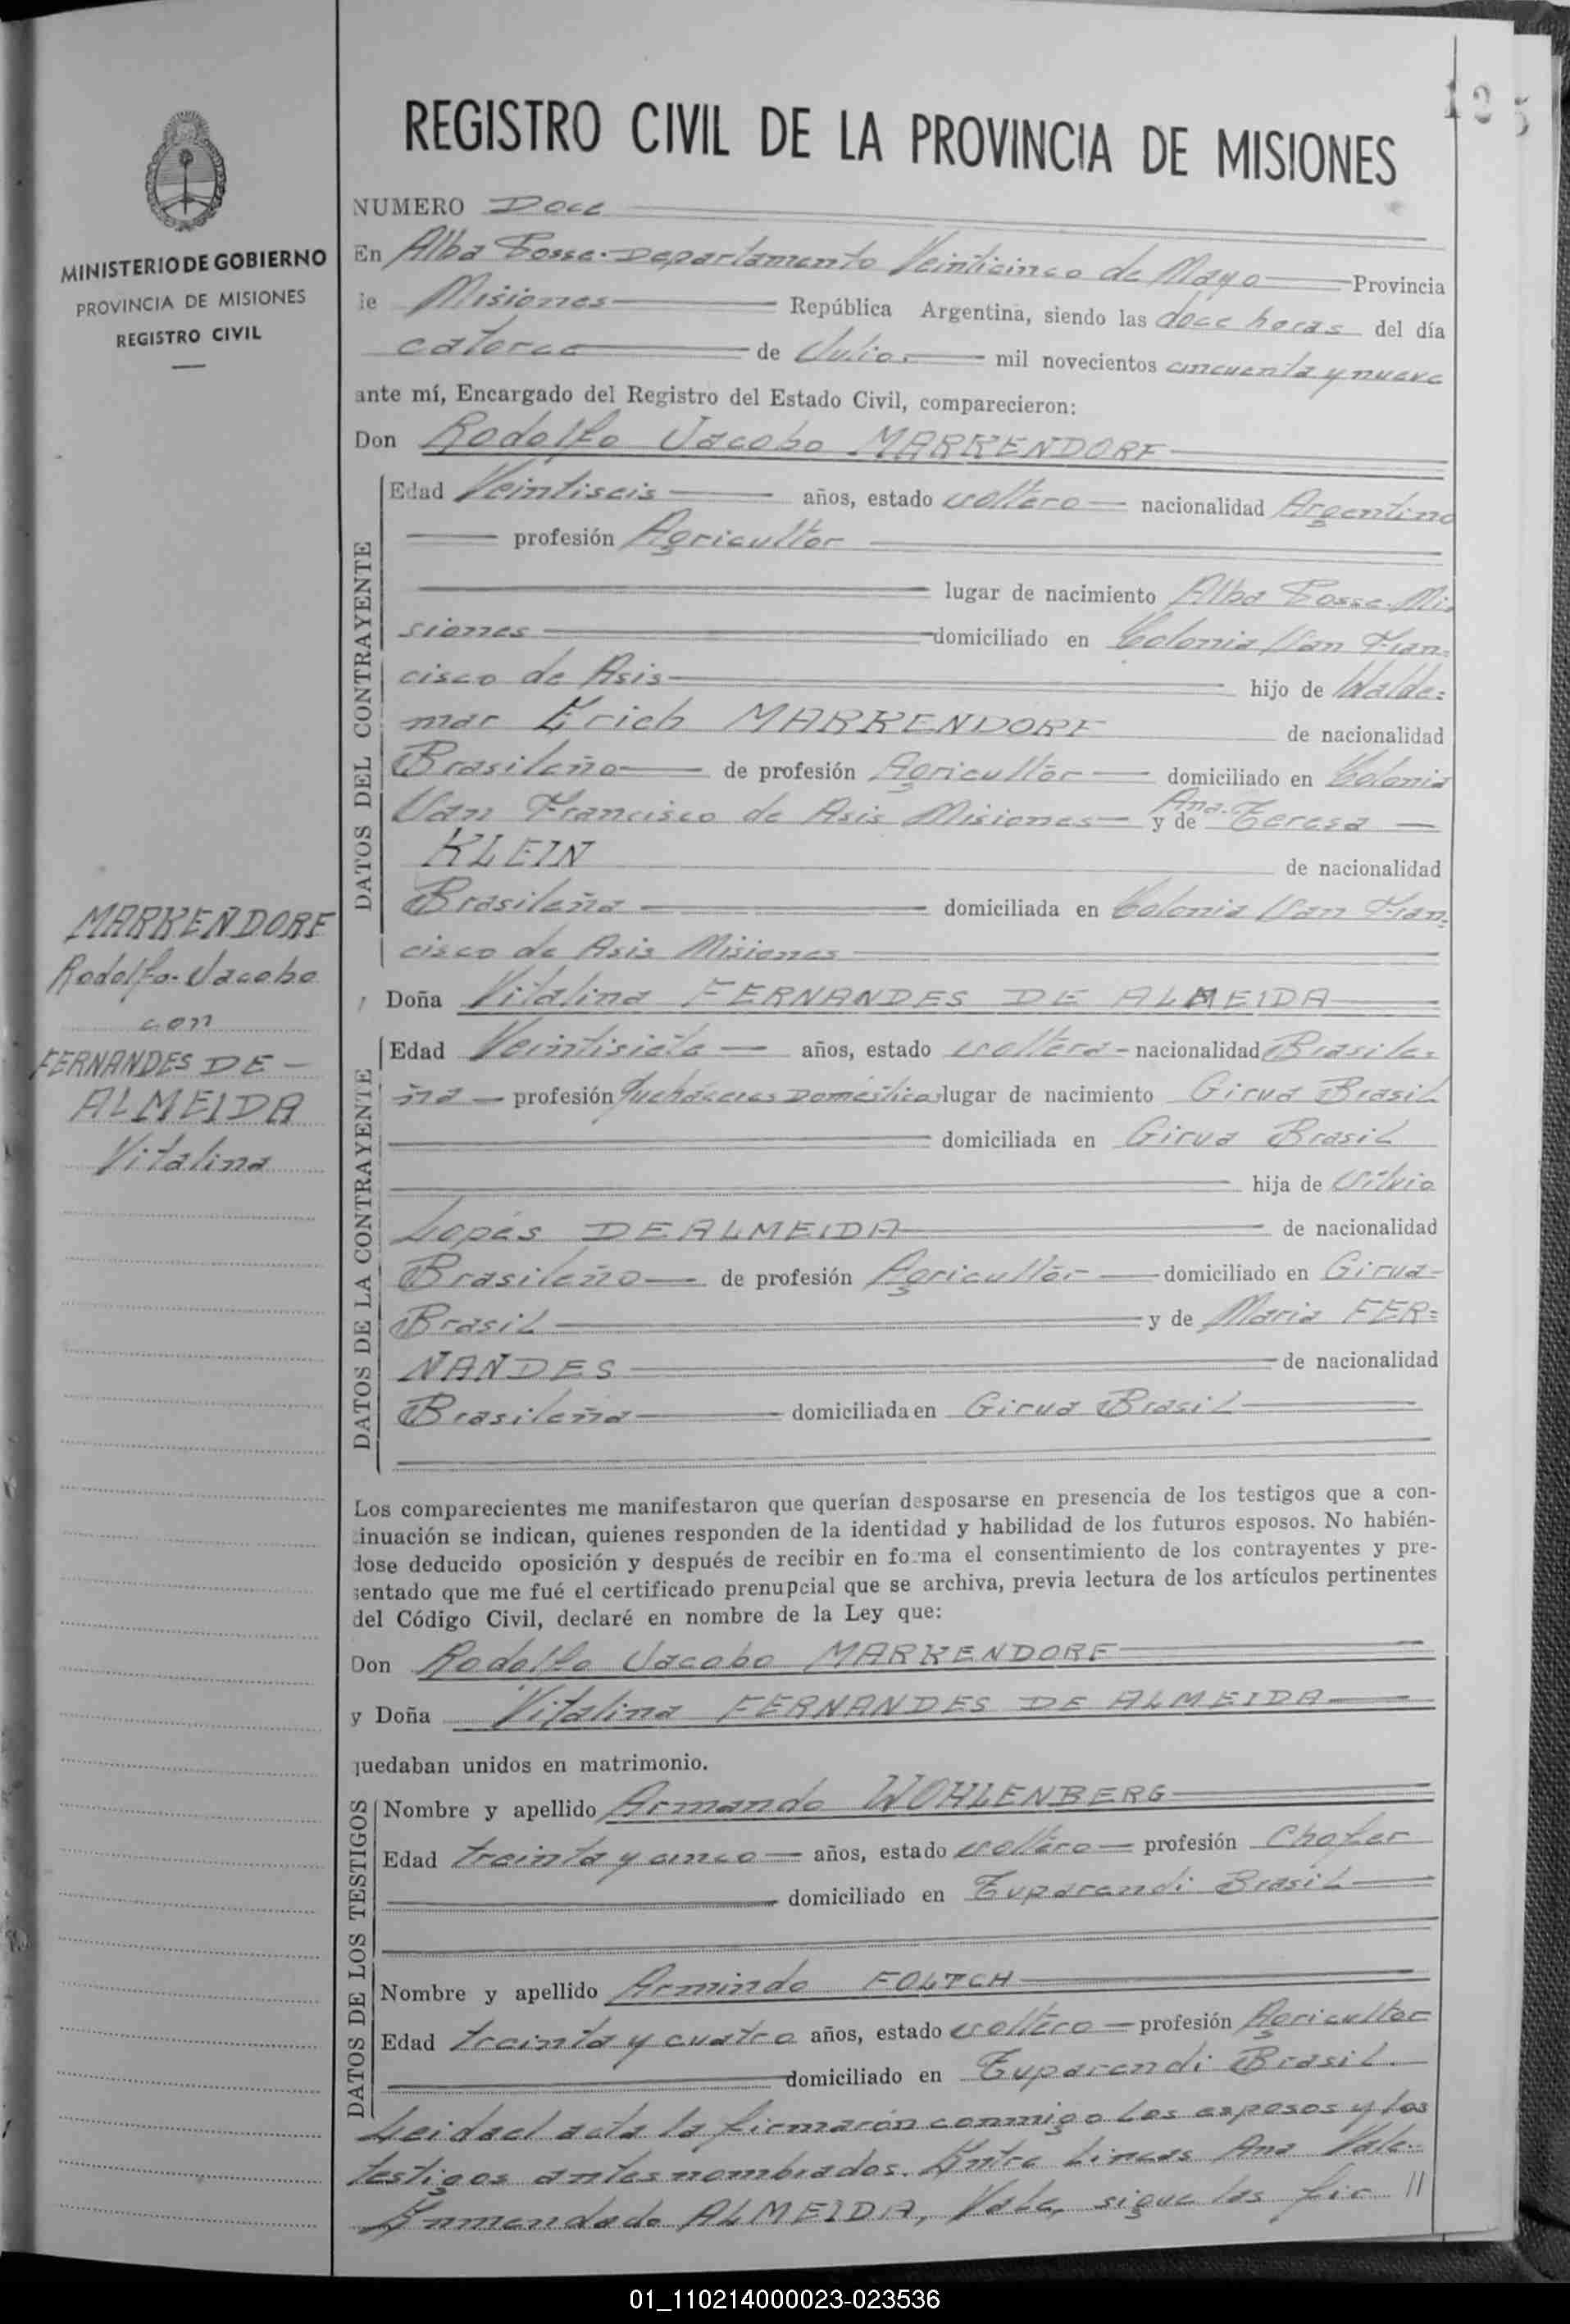 125
REGISTRO CIVIL DE LA PROVINCIA DE MISIONES
MINISTERIO DE GOBIERNO
PROVINCIA DE MISIONES
REGISTRO CIVIL
NUMERO Doce
En Alba Posse. Departamento Veinticinco de Mayo Provincia
de Misiones República Argentina, siendo las doce horas del día
catorce de Julio mil novecientos cincuenta y nueve
ante mí, Encargado del Registro del Estado Civil, comparecieron:
Don Rodolfo Jacobo MARKENDORF
DATOS DEL CONTRAYENTE
Edad Veintiseis años, estado soltero nacionalidad Argentino
profesión Agricultor
lugar de nacimiento Alba Posse. Mi
siones domiciliado en Colonia San Fran=
cisco de Asis hijo de Walde=
mar Erich MARKENDORF de nacionalidad
Brasileño de profesión Agricultor domiciliado en Colonia
San Francisco de Asis Misiones y de Ana Teresa
KLEIN de nacionalidad
Brasileña domiciliada en Colonia San Fran=
cisco de Asis Misiones
MARKENDORF
Rodolfo. Jacobo
con
FERNANDES DE
ALMEIDA
Vitalina
Doña Vitalina FERNANDES DE ALMEIDA
DATOS DE LA CONTRAYENTE
Edad Veintisiete años, estado soltera nacionalidad Brasile=
ña profesión Quehaceres Domésticos lugar de nacimiento Girua Brasil
domiciliada en Girua Brasil
hija de Silvio
Lopes DE ALMEIDA de nacionalidad
Brasileño de profesión Agricultor domiciliado en Girua
Brasil y de Maria FER=
NANDES de nacionalidad
Brasileña domiciliada en Girua Brasil
Los comparecientes me manifestaron que querían desposarse en presencia de los testigos que a con-
tinuación se indican, quienes responden de la identidad y habilidad de los futuros esposos. No habién-
dose deducido oposición y después de recibir en forma el consentimiento de los contrayentes y pre-
sentado que me fué el certificado prenupcial que se archiva, previa lectura de los artículos pertinentes
del Código Civil, declaré en nombre de la Ley que:
Don Rodolfo Jacobo MARKENDORF
y Doña Vitalina FERNANDES DE ALMEIDA
quedaban unidos en matrimonio.
DATOS DE LOS TESTIGOS
Nombre y apellido Armando WOHLENBERG
Edad treinta y cinco años, estado soltero profesión Chofer
domiciliado en Tuparendi Brasil
Nombre y apellido Armindo FOLTCH
Edad treinta y cuatro años, estado soltero profesión Agricultor
domiciliado en Tuparendi Brasil.
Leida el acta la firmarón conmigo los esposos y los
testigos antes nombrados. Entre Lineas Ana Vale.
Enmendado ALMEIDA, Vale, sigue las fir //
01_110214000023-023536